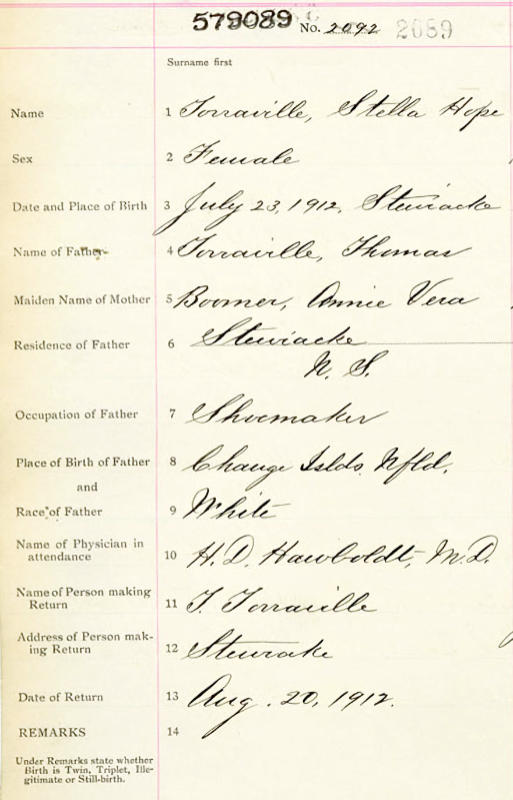 579089 No. 2092 2089
Surname first
Name 1 Torraville, Stella Hope
Sex 2 Female
Date and Place of Birth 3 July 23, 1912, Stewiacke
Name of Father 4 Torraville, Thomas
Maiden Name of Mother 5 Boomer, Annie Vera
Residence of Father 6 Stewiacke
N. S.
Occupation of Father 7 Shoemaker
Place of Birth of Father 8 Change Islds. Nfld.
and
Race of Father 9 White
Name of Physician in
attendance 10 H. D. Hawboldt, M.D.
Name of Person making
Return 11 T. Torraville
Address of Person mak-
ing Return 12 Stewiake
Date of Return 13 Aug. 20, 1912.
REMARKS 14
Under Remarks state whether
Birth is Twin, Triplet, Ille-
gitimate or Still-birth.